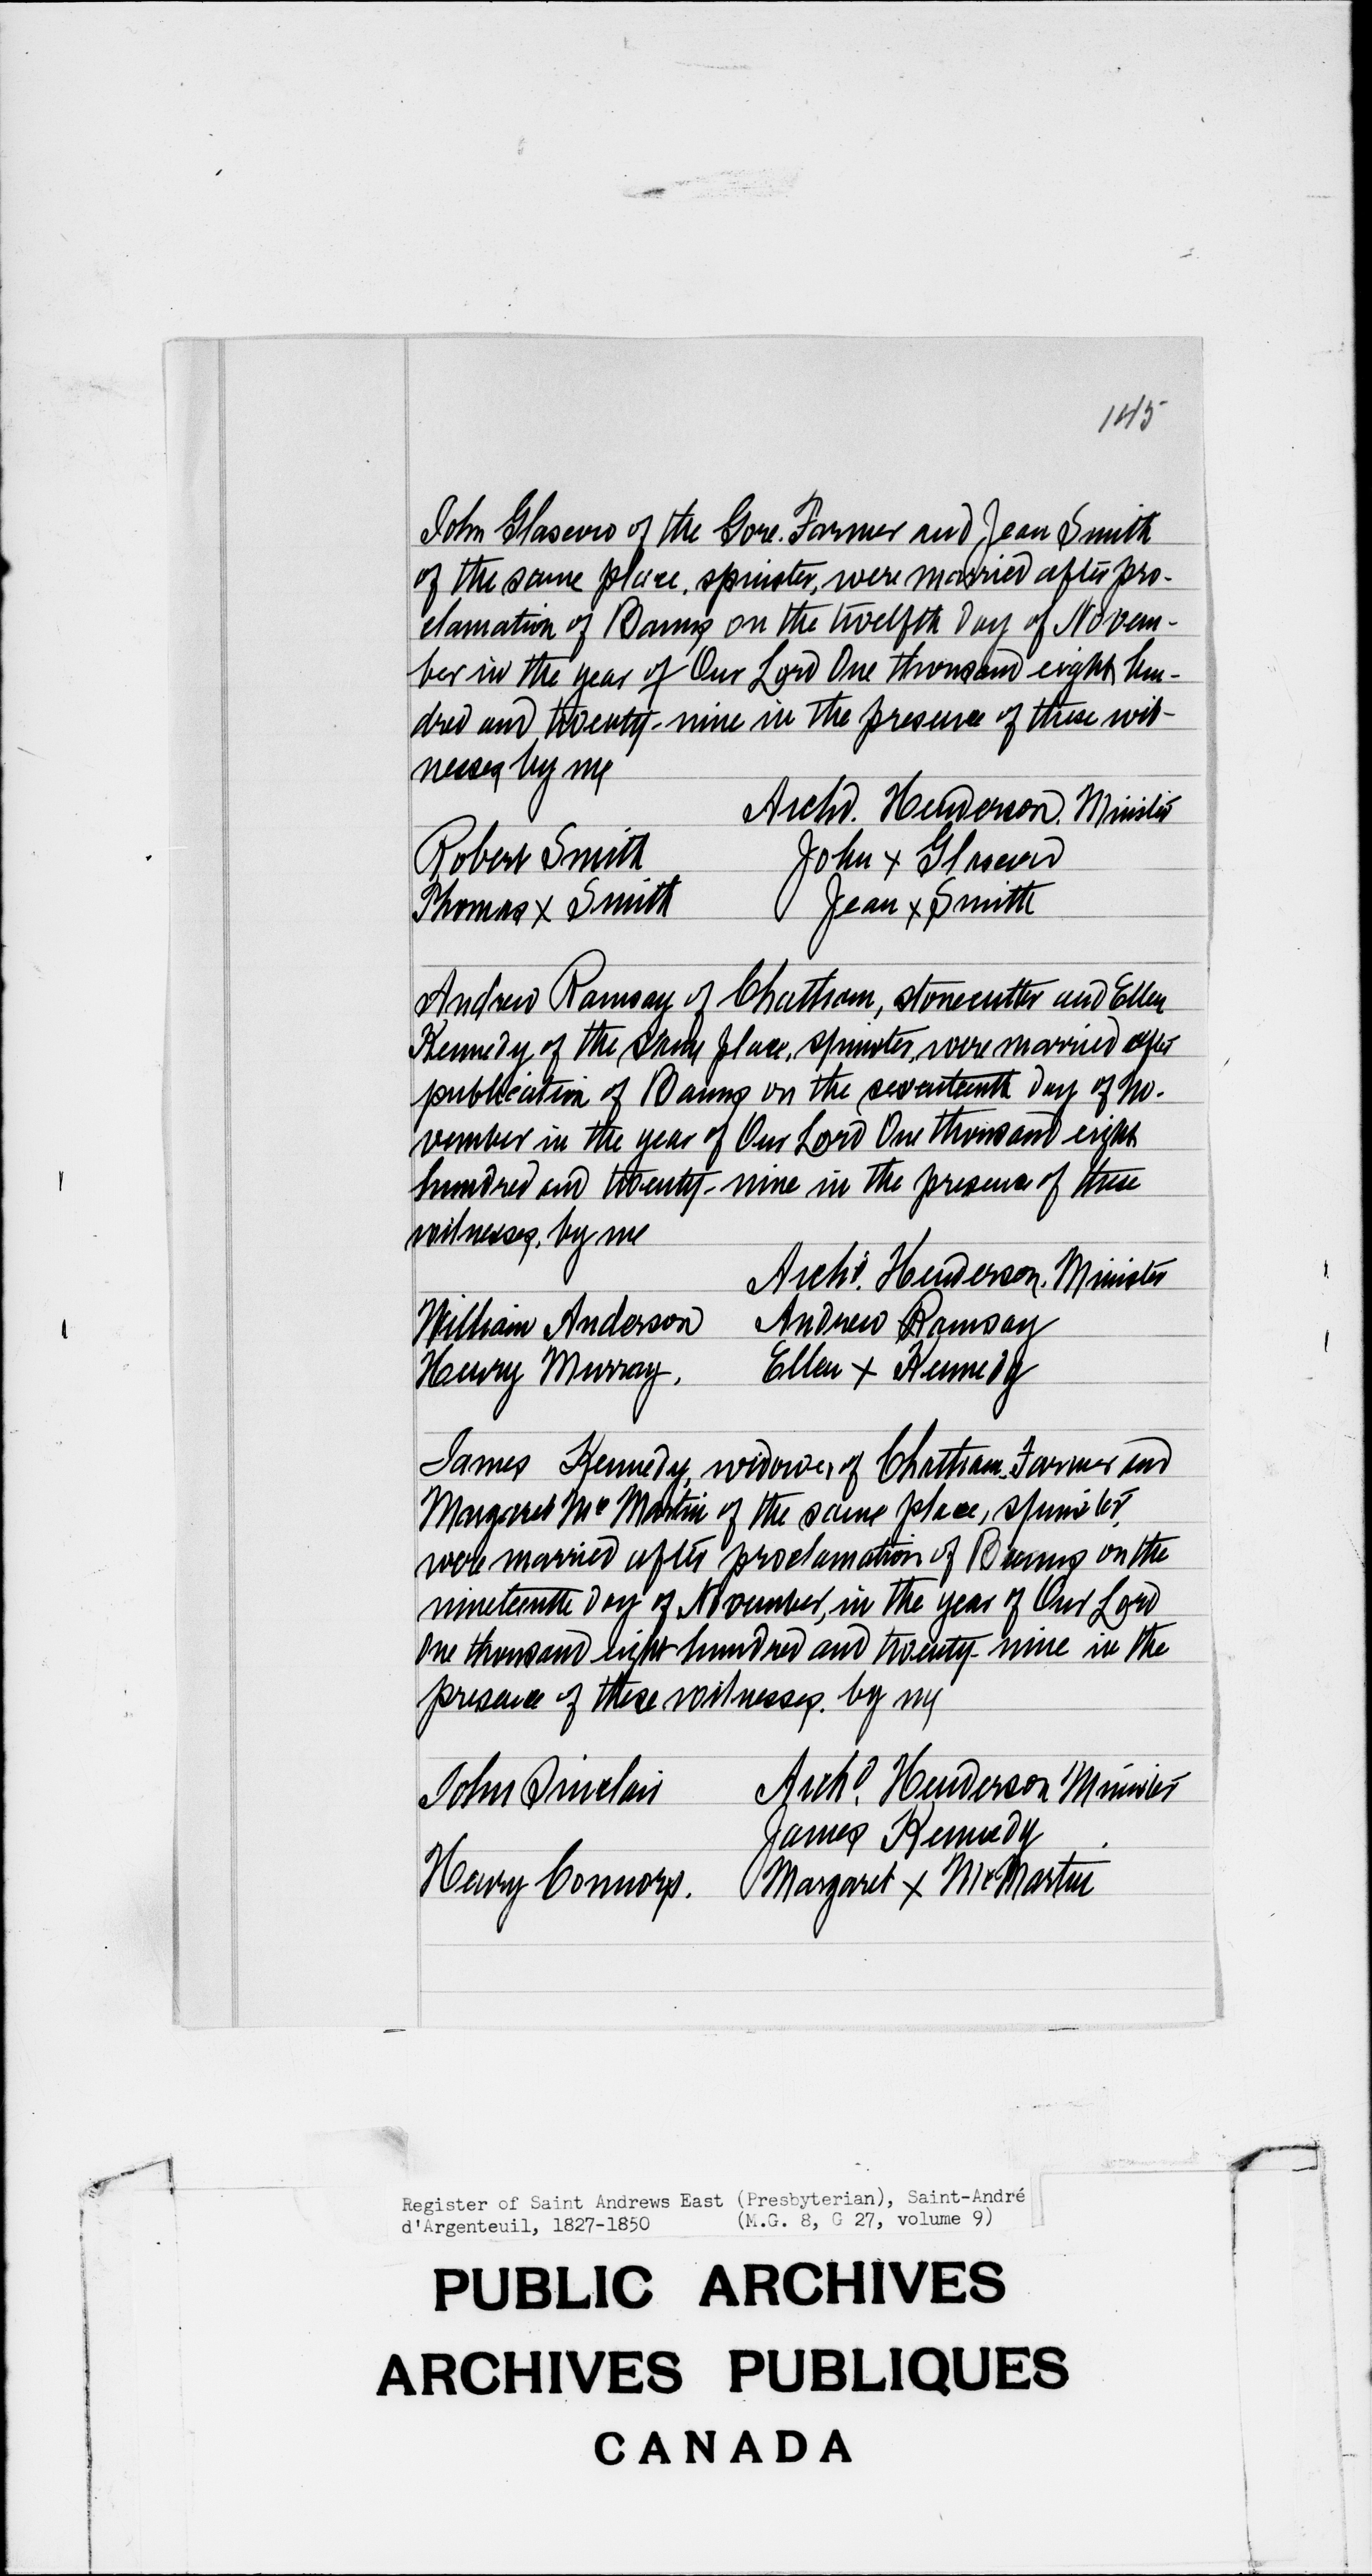 145
John Glascow of the Gore. Farmer and Jean Smith
of the same place, spinster, were married after pro-
clamation of Banns on the twelfth day of Novem-
ber in the year of Our Lord One thousand eight hun-
dred and twenty-nine in the presence of these wit-
nesses by me
Archd. Henderson. Minister
Robert Smith John x Glascow
Thomas x Smith Jean x Smith
Andrew Ramsay of Chatham, stonecutter and Ellen
Kennedy of the same place, spinster, were married after
publication of Banns on the seventeenth day of No-
vember in the year of Our Lord One thousand eight
hundred and twenty-nine in the presence of these
witnesses, by me
Archd. Henderson. Minister
William Anderson Andrew Ramsay
Henry Murray. Ellen x Kennedy
James Kennedy, widower of Chatham Farmer and
Margaret McMartin of the same place, spinster,
were married after proclamation of Banns on the
nineteenth day of November, in the year of Our Lord
One thousand eight hundred and twenty-nine in the
presence of these witnesses. by me
John Sinclair Archd. Henderson Minister
James Kennedy
Henry Connors. Margaret x McMartin
Register of Saint Andrews East (Presbyterian), Saint-André
d'Argenteuil, 1827-1850 (M.G. 8, G 27, volume 9)
PUBLIC ARCHIVES
ARCHIVES PUBLIQUES
CANADA